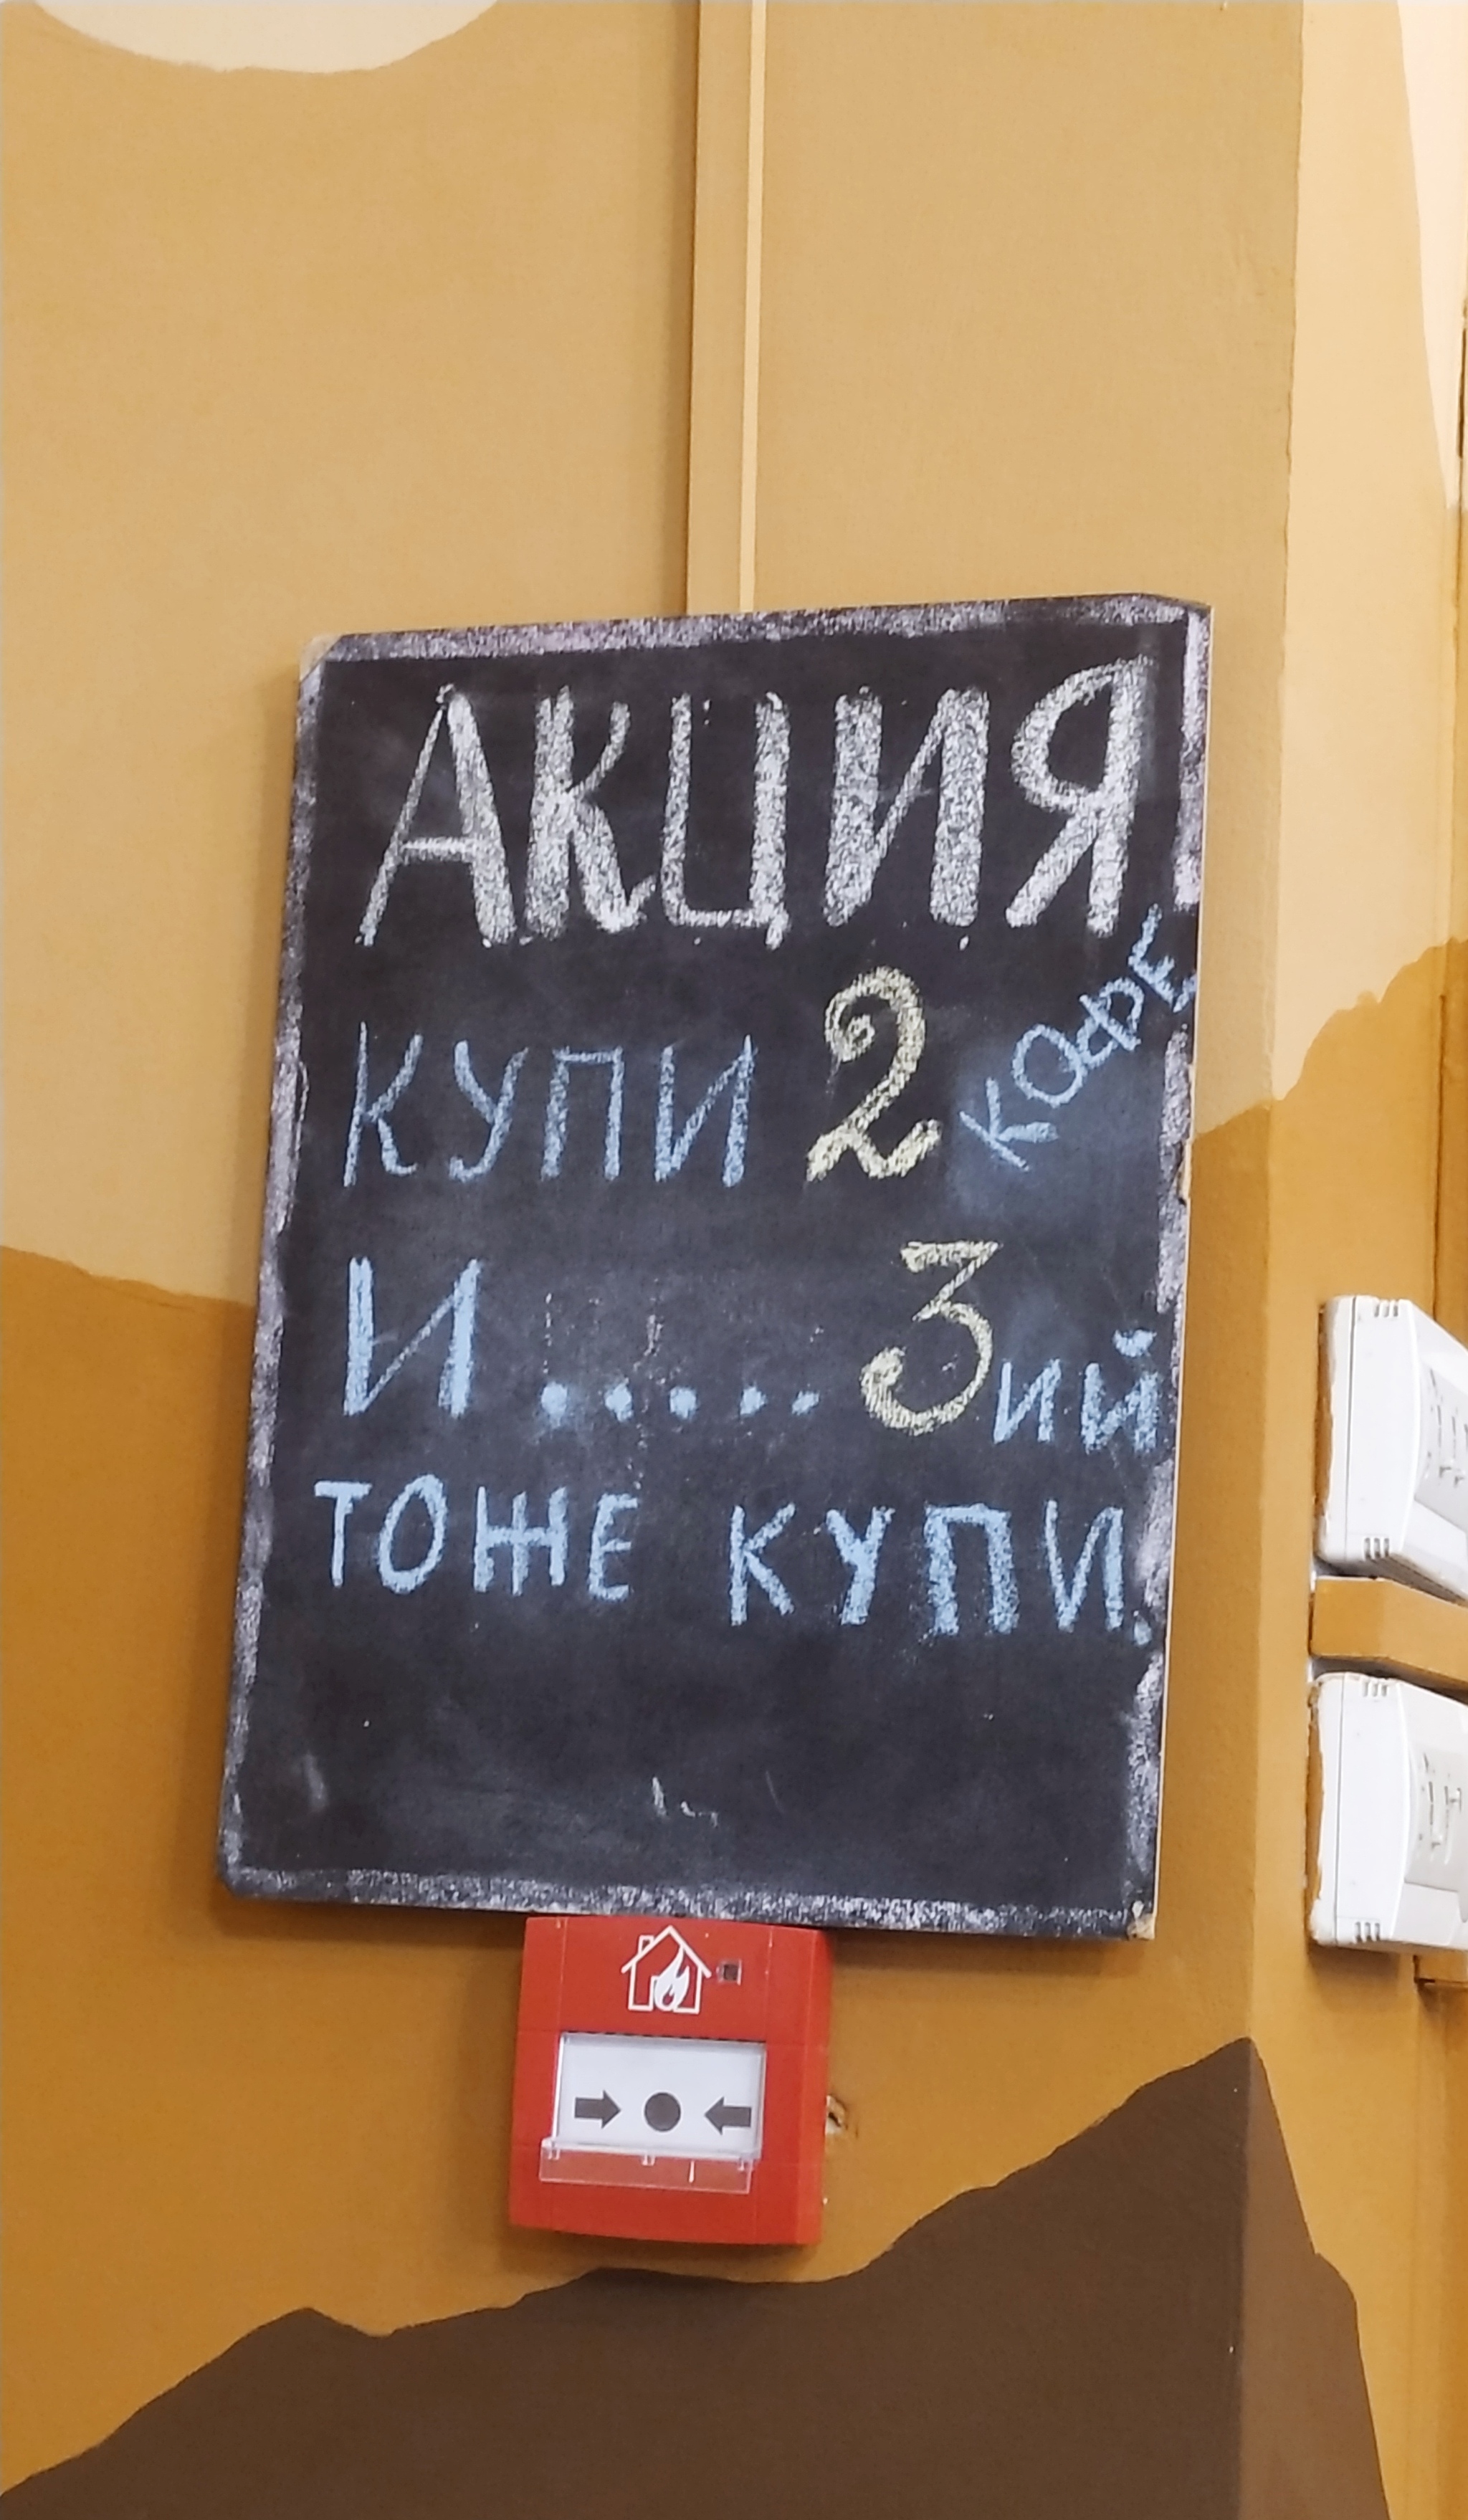 АКЦИЯ
КУПИ 2 КОФЕ
И..... 3ий
ТОЖЕ КУПИ.